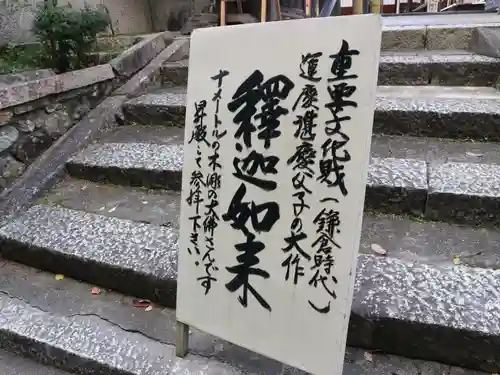 重要文化財(鎌倉時代)
運慶湛慶父子の大作
釈迦如来
十メートルの木彫の大佛さんです
昇殿して下さい